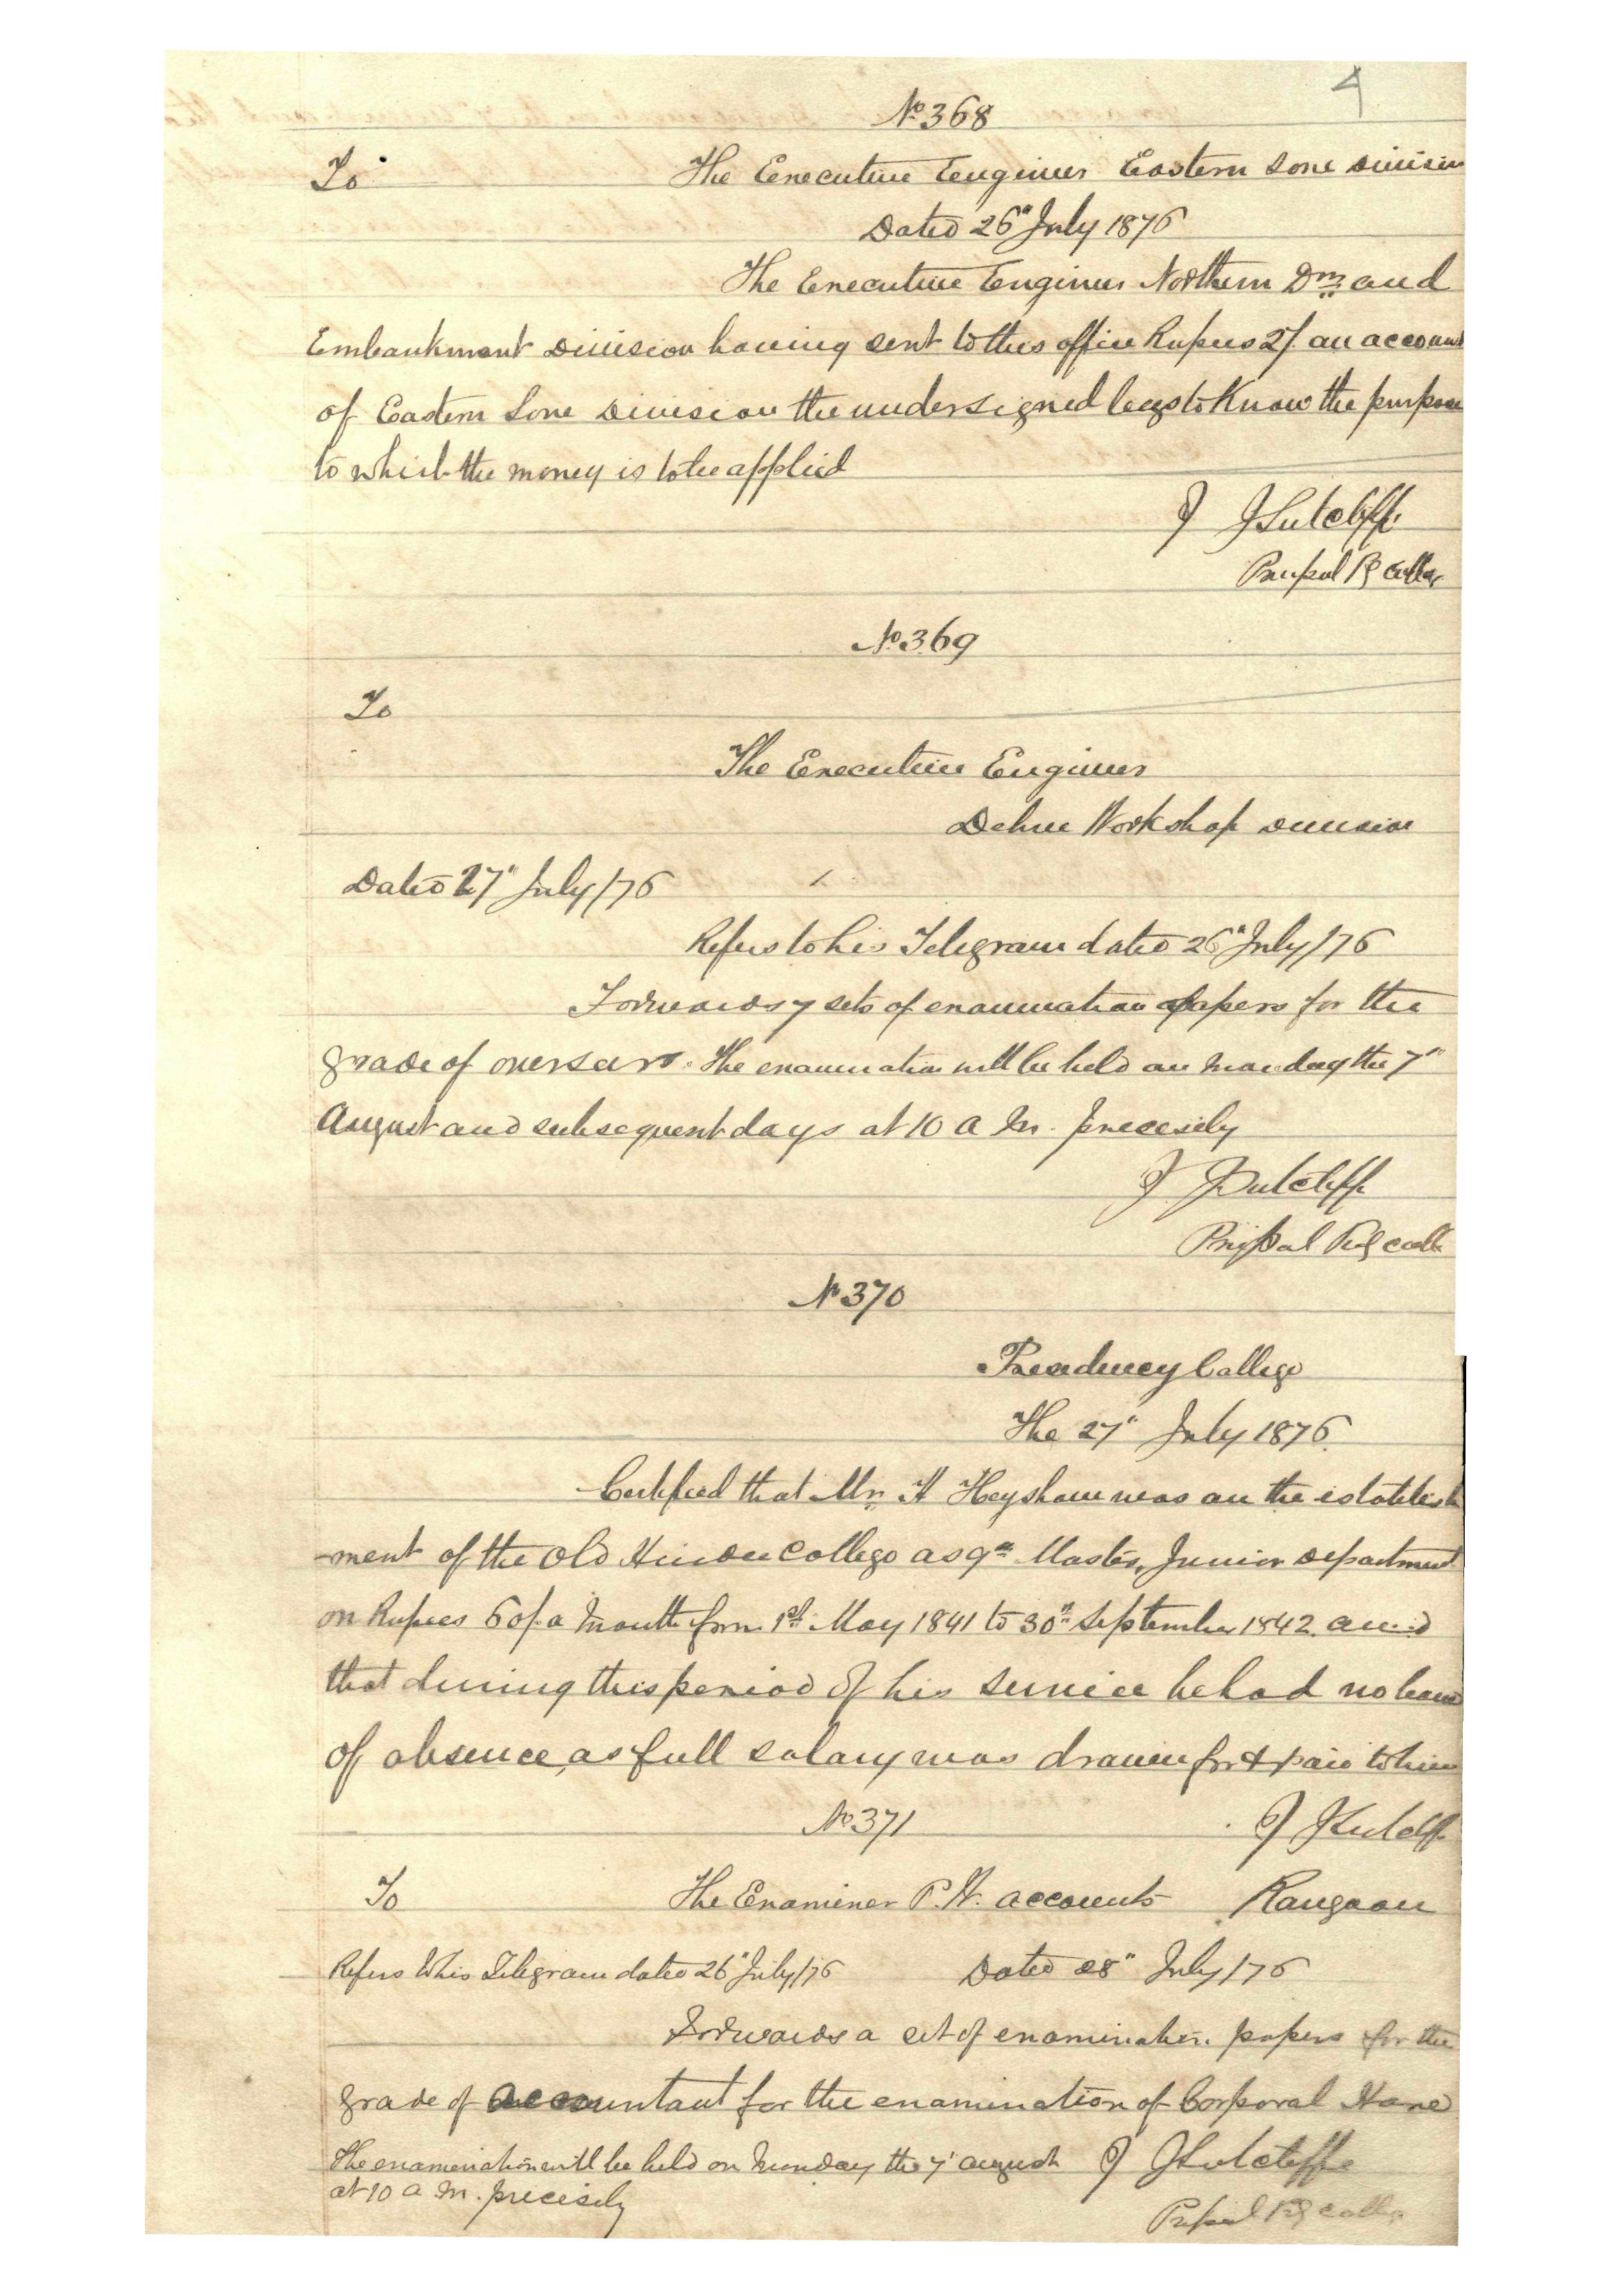 4
No 368
To The Executive Engineer Eastern Sone Division
Dated 26" July 1876
The Executive Engineer Northern Dn and
Embankment Division having sent to this office Rupees 2/. on account
of Eastern Sone Division the undersigned begs to know the purpose
to which the money is to be applied
J Sutcliffe
No 369
To
The Executive Engineer
Dehree Workshop Division
Dated 27" July /76
Refers to his Telegram dated 26" July /76
Forwards 7 sets of examination papers for the
grade of overseers. The examination will be held on Monday the 7"
August and subsequent days at 10 A M. precisely
J Sutcliffe
No 370
Presidency College
The 27" July 1876.
Certified that Mr. H Heysham was on the establish
-ment of the Old Hindu College as 9th Master, Junior Department
on Rupees 60/. a Month from 1st May 1841 to 30th September 1842. and
that during this period of his service he had no leave
of absence, as full salary was drawn for & paid to him
No 371 J Sutcliffe
To The Examiner P. W. accounts Rangoon
Refers to his Telegram dated 26" July /76 Dated 28" July /76
Forwards a set of examination papers for the
grade of accountant for the examination of Corporal Hare
The examination will be held on Monday the 7" August J Sutcliffe
at 10 a m. precisely